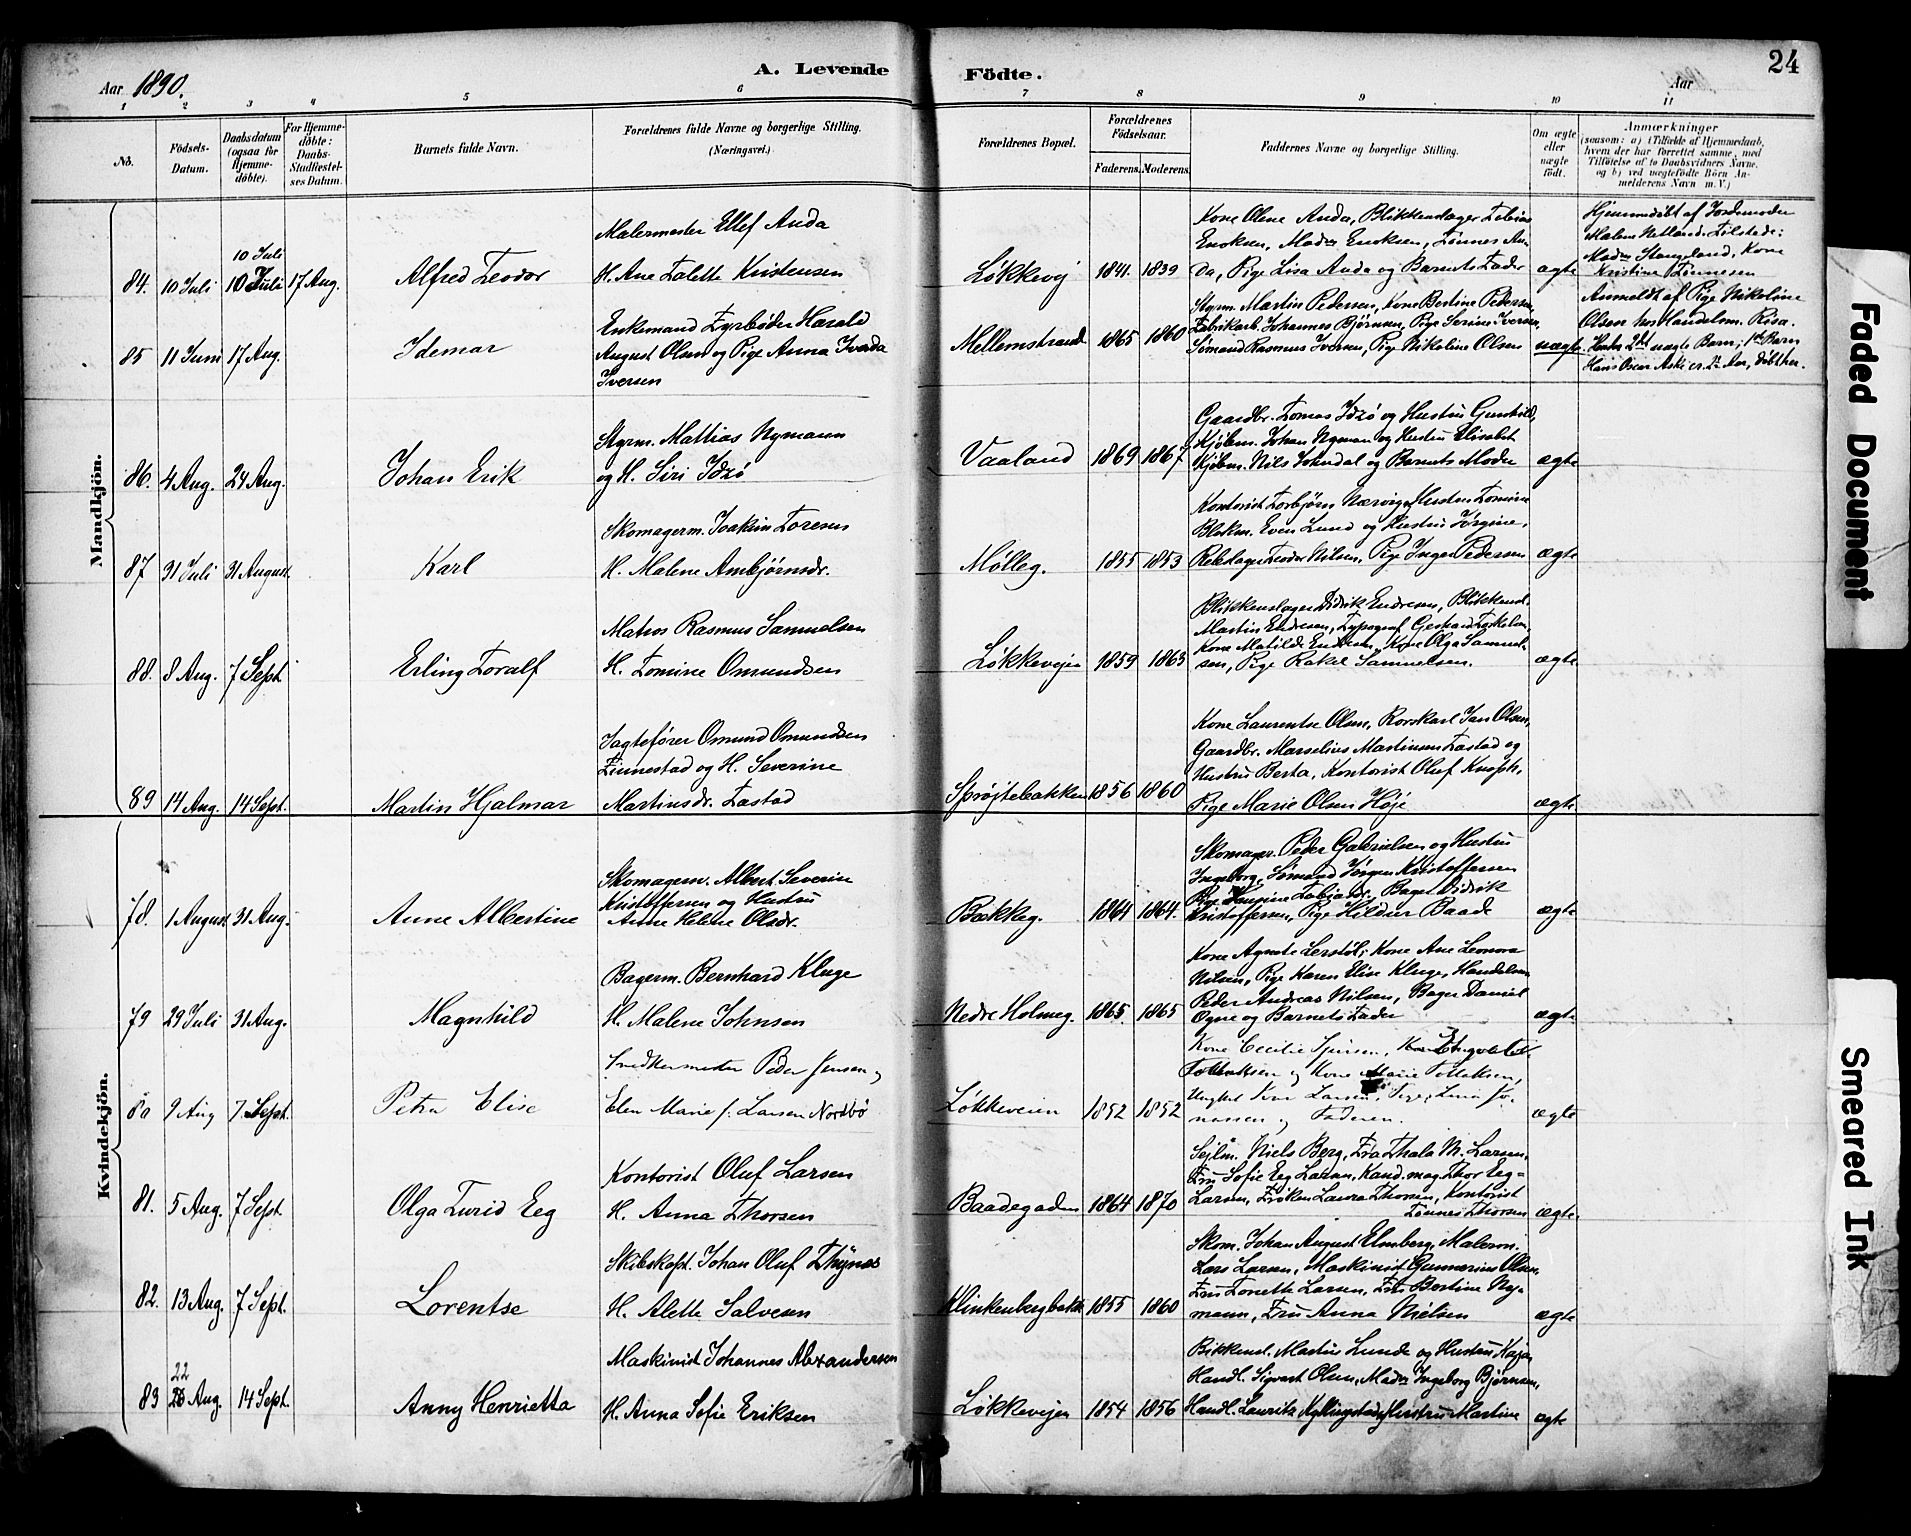 24
Aar 1890.
A. Levende
Födte.
Aar
1 2 3 4 5 6 7 8 9 10 11
No.
Födsels-
Datum.
Daabsdatum
(ogsaa for
Hjemme-
döbte).
For Hjemme-
döbte:
Daabs-
Stadfæstel-
ses Datum.
Barnets fulde Navn.
Forældrenes fulde Navne og borgerlige Stilling.
(Næringsvei.)
Forældrenes Bopæl.
Forældrenes
Fødselsaar.
Faderens. Moderens.
Faddernes Navne og borgerlige Stilling.
Om ægte
eller
uægte
födt.
Anmærkninger
(saasom: a) i Tilfælde af Hjemmedaab,
hvem der har forrettet samme, med
Tilföielse af to Daabsvidners Navne,
og b) ved uægtefödte Börn An-
melderens Navn m. V.)
Mandkjön.
84. 10 Juli
10 Juli
10 Juli
17 Aug.
Alfred Teodor
Malermester Ellef Anda
H. Ane Talette Kristensen
Løkkevej
1841. 1839
Kone Olene Anda, Blikkenslager Tobias
Enoksen, Mad. Enoksen, Tønnes An-
da, Pige Lisa Anda og Barnets Fader
ægte
Hjemmedøbt af Jordemoder
Malene Netland. Tilstede:
Madm Stangeland, Kone
Kristine Tønnesen
85 11 Juni 17 Aug.
Idemar
Enkemand Fyrbøder Harald
August Olsen og Pige Anna Iverda
Iversen
Mellemstrand
1865 1860
Styrm. Martin Pedersen, Kone Bertine Pedersen,
Fabrikarb. Johannes Bjørnsen, Pige Serine Iversen,
Sømand Rasmus Iversen, Pige Nikoline Olsen
uægte
Anmeldt af Pige Nikoline
Olsen hos Handelsm. Risa.
Hendes 2det uægte Barn; 1ste Barn
Hans Oscar Aske er 2 1/2 Aar, døbt her.
86. 4 Aug. 24 Aug.
Johan Erik
Styrm. Mattias Nymann
og H. Siri Idzø
Vaaland
1869 1867
Gaardbr. Tomas Idzø og Hustru Gunhild,
Kjøbm. Johan Nyman og Hustru Elisabet
Kjøbm. Nils Johndal og Barnets Moder
ægte
87 31 Juli 31 August.
Karl
Skomagerm. Joakim Toresen
H. Malene Ambjørnsdr.
Mølleg.
1855 1853
Kontorist Torbjørn Nærvig, Hustru Tomine
Blokm. Even Lund og Hustru Jørgine,
Rebslager Teodor Nilsen, Pige Inger Pedersen
ægte
88. 8 Aug. 7 Sept
Erling Toralf
Matros Rasmus Samuelsen
H. Tomine Omundsen
Løkkevejen
1859 1863
Blikkenslager Didrik Endresen, Blikkensl.
Martin Endresen, Typograf Gerhard Torkelsen
Kone Matilde Endresen, Kone Olga Samuel-
sen, Pige Rakel Samuelsen.
ægte
89 14 Aug. 14 Sept.
Martin Hjalmar
Jagtefører Omund Omundsen
Finnestad og H. Severine
Martinsdr. Fastad
Sprøjtebakken
1856 1860
Kone Laurentse Olsen, Rorskarl Jan Olsen,
Gaardbr. Marselius Martinsen Fastad og
Hustru Berta, Kontorist Oluf Knoph,
Pige Marie Olsen Høje
ægte
Kvindekjön.
78. 1 August 31 Aug.
Anne Albertine
Skomagerm. Albert Severin
Kristoffersen og Hustru
Anne Helene Olsdr.
Bakkeg.
1864 1864.
Skomager. Peder Gabrielsen og Hustru
Ingeborg, Sømand Jørgen Kristoffersen
Pige Tobiasdr., Bager Didrik
Kristoffersen, Pige Hildur Baade
ægte
79 29 Juli 31 Aug.
Magnhild
Bagerm. Bernhard Kluge
H. Malene Johnsen
Nedre Holmeg.
1865. 1865
Kone Agnete Lerstøl, Kone Ane Leonora
Nilsen, Pige Karen Elise Kluge, Handelsm.
Peder Andreas Nilsen, Bager Daniel
Ogne og Barnets Fader
ægte.
80 9 Aug 7. Sept.
Petra Elise
Snedkermester Peder Jensen og
Elen Marie f. Larsen Nordbø
Løkkeveien
1852 1852
Kone Cecilie
og Kone Marie
Ungkarl Larsen, Pige
og Faderen.
ægte
81. 5 Aug. 7 Sept
Olga Turid Eeg
Kontorist Oluf Larsen
H. Anna Thorsen
Baadegaden
1864 1870
Sejlm. Niels Berg, Fru Thala M. Larsen,
Fru Sofie Eeg Larsen, Kand. mag. Thor Eeg-
Larsen, Frøken Laura Thorsen, Kontorist
Tønnes Thorsen
ægte.
82. 13 Aug. 7 Sept.
Lorentse
Skibskapt. Johan Oluf Thynæs
H. Alette Salvesen
Klinkenbergbakk
1855 1860
Skom. Johan August Elmberg, Malerm.
Lars Larsen, Maskinist Gunnarius Olsen,
Fru Tonette Larsen, Fru Bertine Ny-
mann, Fru Anna Nielsen
ægte
83 22 Aug. 14 Sept.
Anny Henrietta
Maskinist Johannes Alexandersen
H. Anna Sofie Eriksen
Løkkevejen
1854 1856
Blikkensl. Martin Lunde og Hustru Kaja,
Handl. Sigvart Olsen, Madm Ingeborg Bjørnsen,
Handl. Lauritz Kyllingstad, Hustru Martine
ægte
Faded Document
Smeared Ink